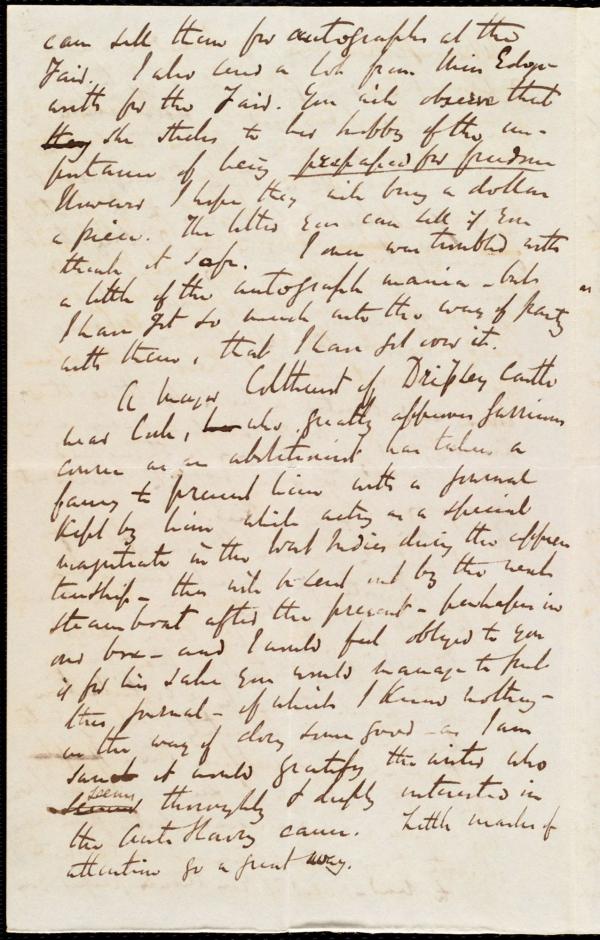 can sell them for autographs at the
Fair. I also send a lot from Miss Edge-
worth for the Fair. You will observe that
they she sticks to her hobby of the im-
portance of being prepared for freedom
However I hope they will bring a dollar
a piece. The letter you can sell if you
think it safe. I once was troubled with
a little of the autograph mania - but
I have got so much into the way of parting
with them, that I have got over it.
A Major Colthurst of Dripsey Castle
near Cork, who greatly approves Garrisons
course as an abolitionist has taken a
fancy to present him with a journal
kept by him while acting as a special
magistrate in the West Indies during the appren
ticeship - this will be sent out by the next
steamboat after the present - perhaps in
our box - and I would feel obliged to you
if for his sake you would manage to put
this journal - of which I know nothing -
in the way of doing some good - as I am
sure it would gratify the writer who
seems thoroughly & deeply interested in
the Anti Slavery cause. Little marks of
attention go a great way.